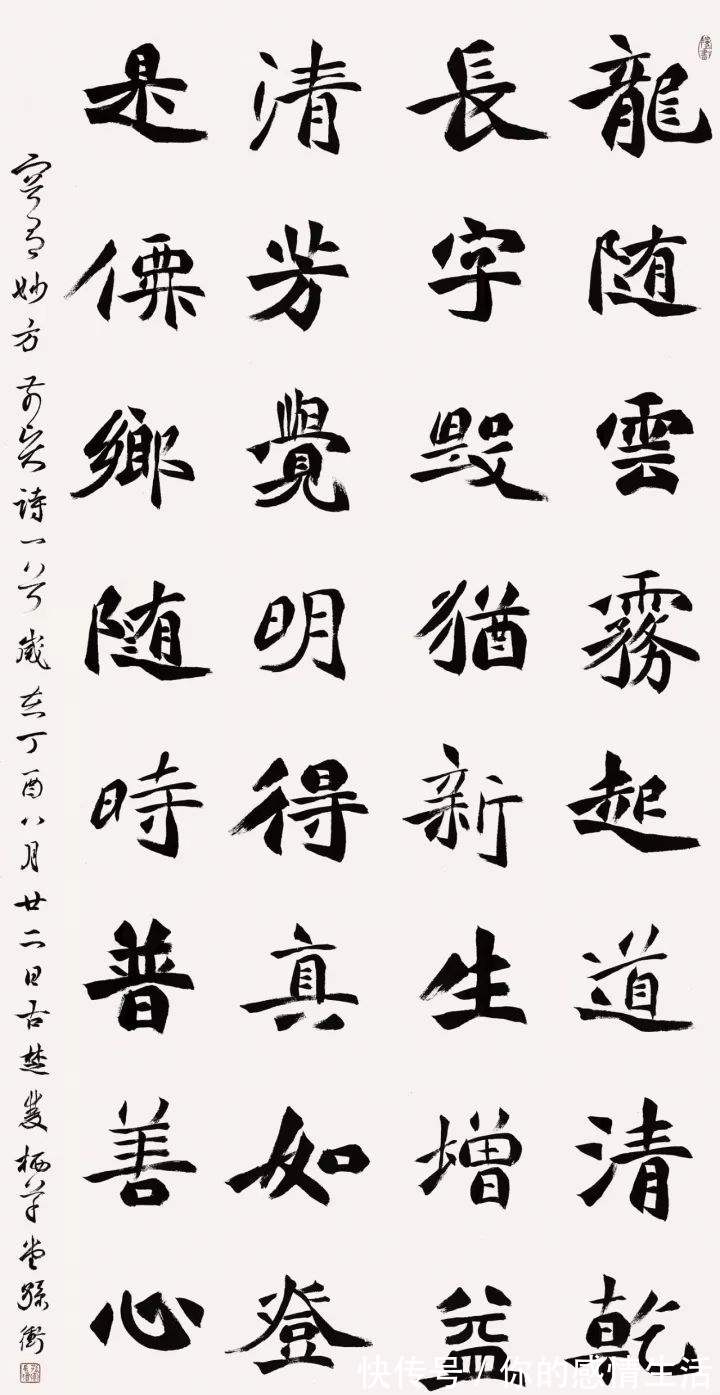 龍随雲霧起道清乾
長字毀猶新生增益
清芳覺明得真如登
是僊鄉随時普善心
妙方詩一首歲在丁酉八月廿二日古楚栖草堂
快传号 / 你的感情生活